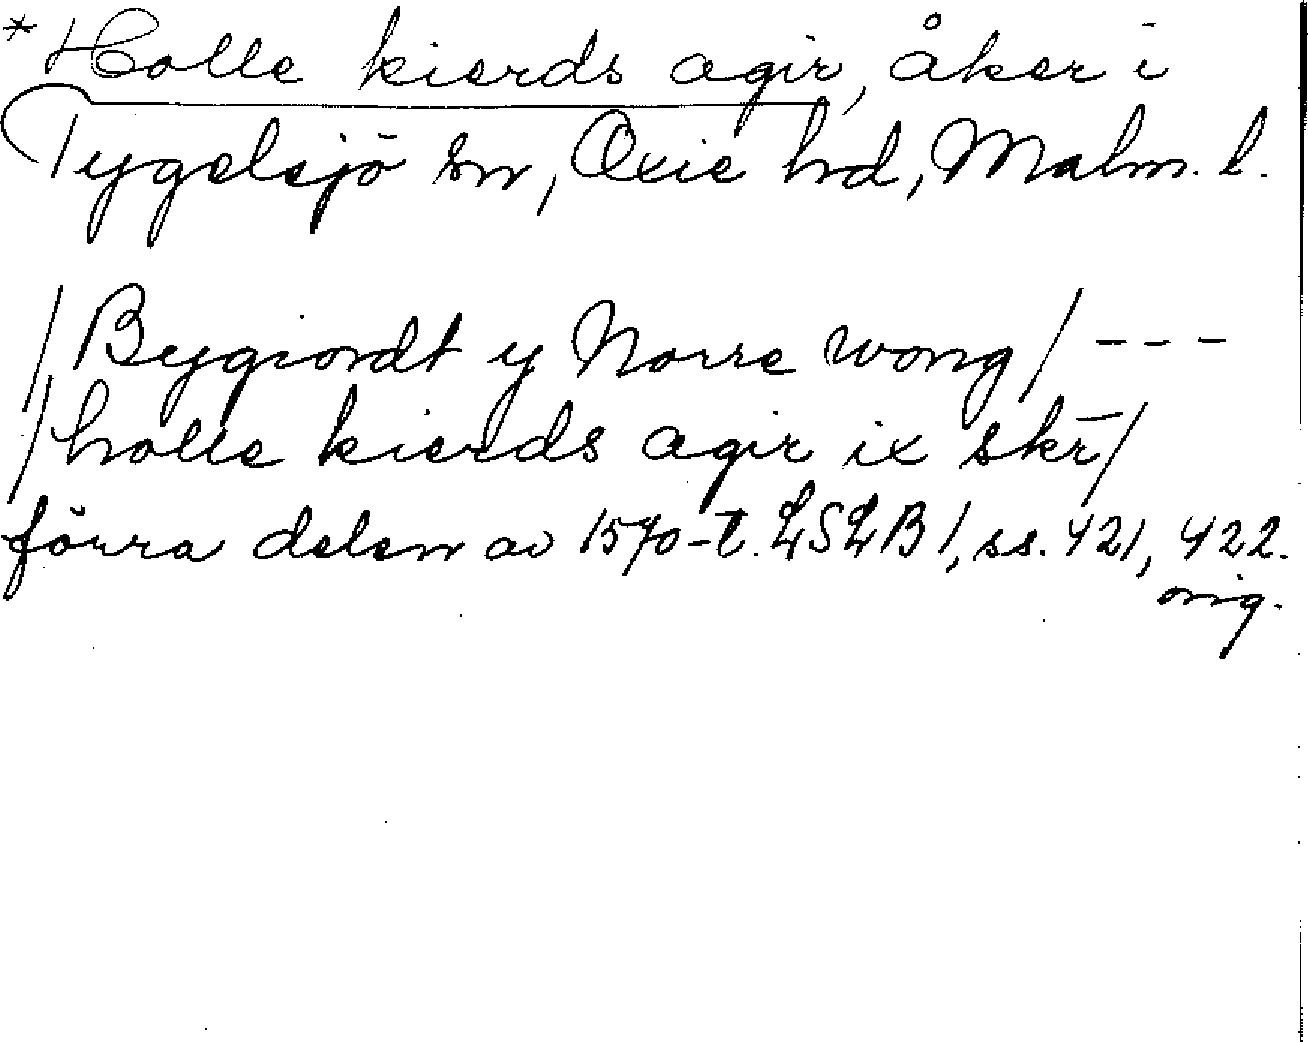 *Holle kierds agir, åker i
Tygelsjö sn, Oxie hd, Malm. l.
/Bygiordt y Norre wong/ ---
/holle kierds agir ix skr̄/
förra delen av 1570-t. LSLB 1, ss. 421, 422.
orig.